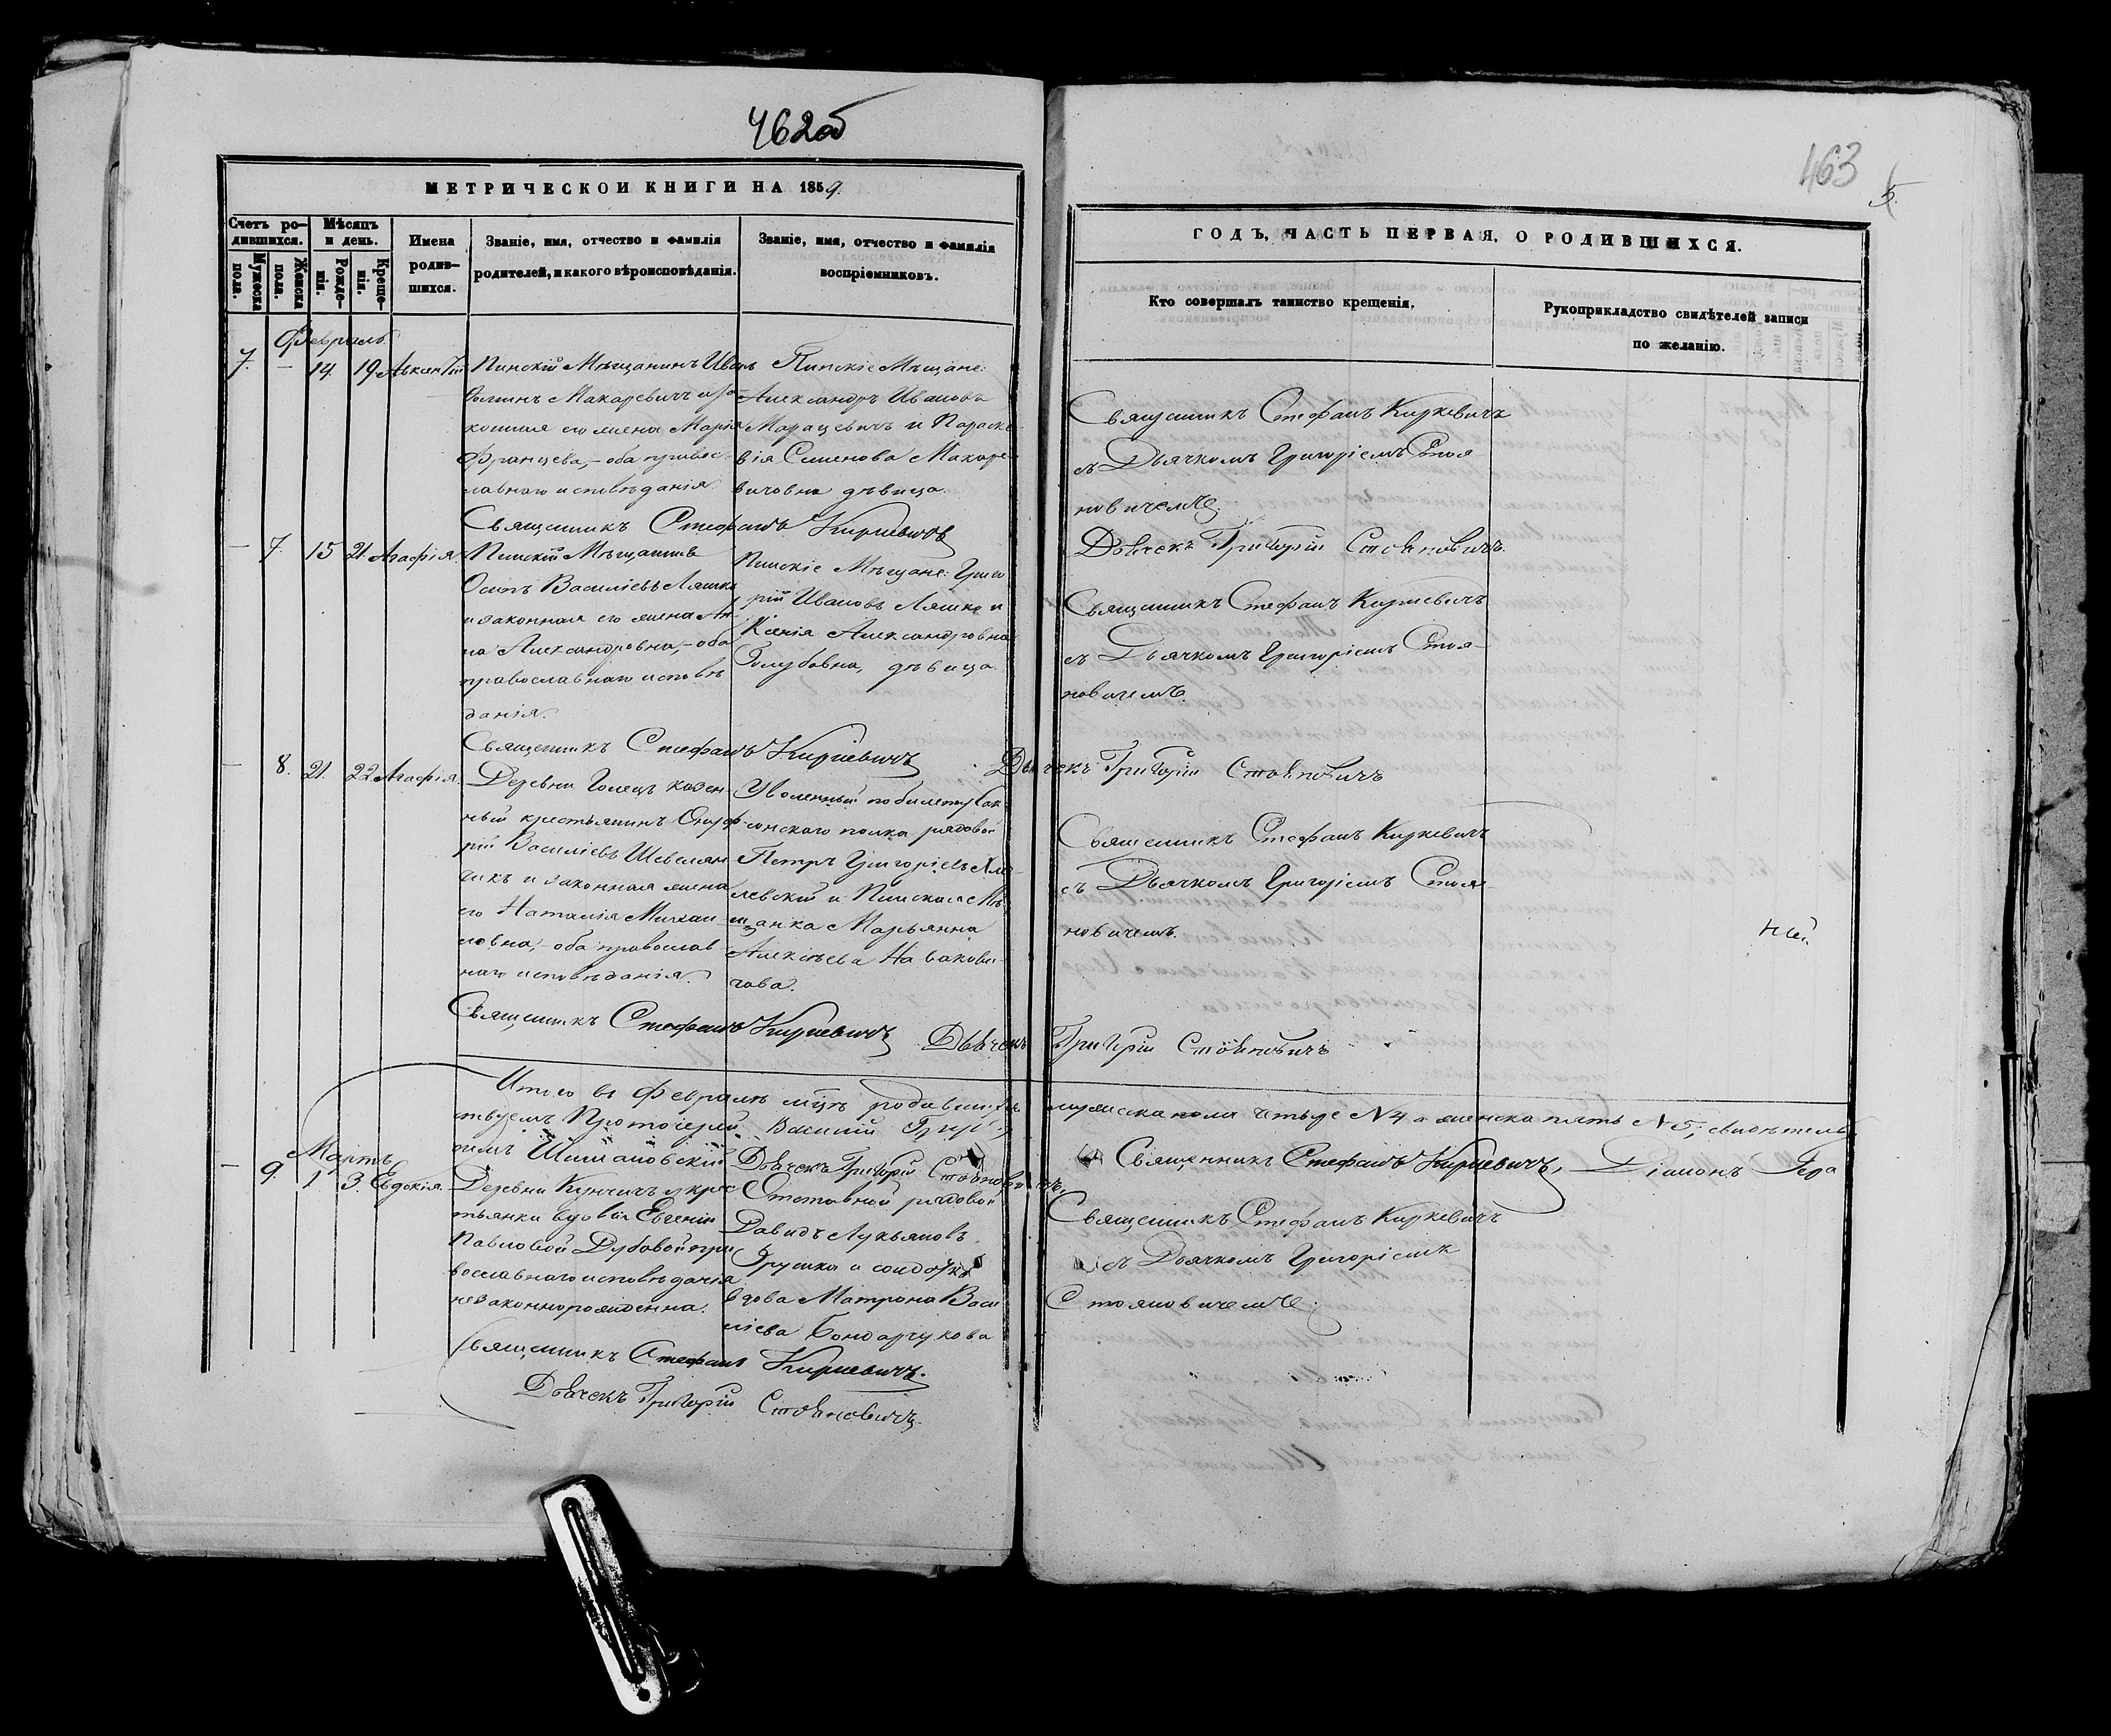 462об
МЕТРИЧЕСКОИ КНИГИ НА 1859.
Счетъ ро-
дившихся.
Мужеска
пола.
Женска
пола.
Мѣсяцъ
и день.
Рожде-
нія.
Креще-
нія.
Имена
родив-
шихся.
Званіе, имя, отчество и фамилія
родителей, и какого вѣроисповѣданія.
Званіе, имя, отчество и фамилія
воспріемниковъ.
Февраль
7. - 14. 19
Пинскій Мѣщанинъ Иванъ
Макаревичъ и за-
конная его жена Марія
Францева, - оба правос-
лавнаго исповѣданія.
Пинскіе Мѣщане:
Александръ Ивановъ
Марацевичъ и Параске-
вія Семенова Макаре-
вичовна дѣвица.
Священникъ Стефанъ Киркевичъ
- 7. 15 21. Агафія.
Пинскій Мѣщанинъ
Осипъ Василіевъ Ляшко
и законная его жена Ан-
на Александровна, - оба
православнаго исповѣ
данія.
Пинскіе Мѣщане: Григо
рій Ивановъ Ляшко и
Ксенія Александровна
Голубовна, дѣвица.
Священникъ Стефанъ Киркевичъ
- 8. 21. 22 Агафія.
Деревни Голецъ казен-
ный крестьянинъ Онуф-
рій Василіевъ
чикъ и законная жена
его Наталія Михаи
ловна, - оба православ
наго исповѣданія.
Уволенный по билету
сонскаго полка рядовой
Петръ Григоріевъ
левскій и Пинская Мѣ-
щанка Марьянна
Алексѣева Новакови-
чова.
Священникъ Стефанъ Киркевичъ
Итого въ Февралѣ мцѣ родившихся
ствуемъ Протоіерей Василій
симъ Шимановскій
Дьячекъ Григорій Стояновичъ.
Мартъ
- 9. 1 3. Евдокія.
Деревни крес
тьянки вдовы Евгеніи
Павловой Дубовой пра
вославнаго исповѣданія
незаконнорожденна.
Отставной рядовой
Давидъ Лукьяновъ
Грушка и солдатка
вдова Матрона Васи
ліева Бондарчукова
Священникъ Стефанъ Киркевичъ.
Дьячекъ Григорій Стояновичъ.
463
5.
ГОДЪ, ЧАСТЬ ПЕРВАЯ, О РОДИВШИХСЯ.
Кто совершалъ таинство крещенія.
Рукоприкладство свидѣтелей записи
по желанію.
Священникъ Стефанъ Киркевичъ
съ Дьячкомъ Григоріемъ Стоя-
новичемъ.
Дьячекъ Григорій Стояновичъ.
Священникъ Стефанъ Киркевичъ
съ Дьячкомъ Григоріемъ Стоя-
новичемъ.
Дьячекъ Григорій Стояновичъ
Священникъ Стефанъ Киркевичъ
съ Дьячкомъ Григоріемъ Стоя-
новичемъ.
Дьячекъ Григорій Стояновичъ
мужеска пола четыре N 4 а женска пять N 5, свидѣтель
Священникъ Стефанъ Киркевичъ, Діаконъ Гера
Священникъ Стефанъ Киркевичъ
съ Дьячкомъ Григоріемъ
Стояновичемъ.